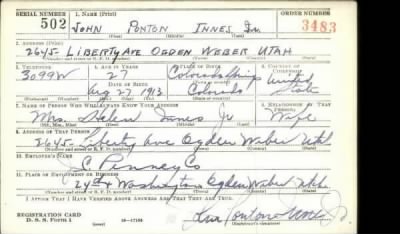 SERIAL NUMBER 1. NAME (Print) ORDER NUMBER
502 JOHN PONTON INNES Jr. 3483
2. ADDRESS (Print)
2645 LIBERTY AVE OGDEN WEBER UTAH
3. TELEPHONE 4. AGE IN YEARS 5. PLACE OF BIRTH 6. COUNTRY OF CITIZENSHIP
3099W 27 Colorado Springs United
DATE OF BIRTH
Aug 27 1913 Colorado State
7. NAME OF PERSON WHO WILL ALWAYS KNOW YOUR ADDRESS 8. RELATIONSHIP OF THAT PERSON
Mrs. Helen Innes Jr Wife
9. ADDRESS OF THAT PERSON
2645 Liberty Ave Ogden Weber Utah
10. EMPLOYER'S NAME
J C Penney Co
11. PLACE OF EMPLOYMENT OR BUSINESS
24th & Washington Ogden Weber Utah
I AFFIRM THAT I HAVE VERIFIED ABOVE ANSWERS AND THAT THEY ARE TRUE.
REGISTRATION CARD
D. S. S. FORM 1 John Ponton Innes Jr